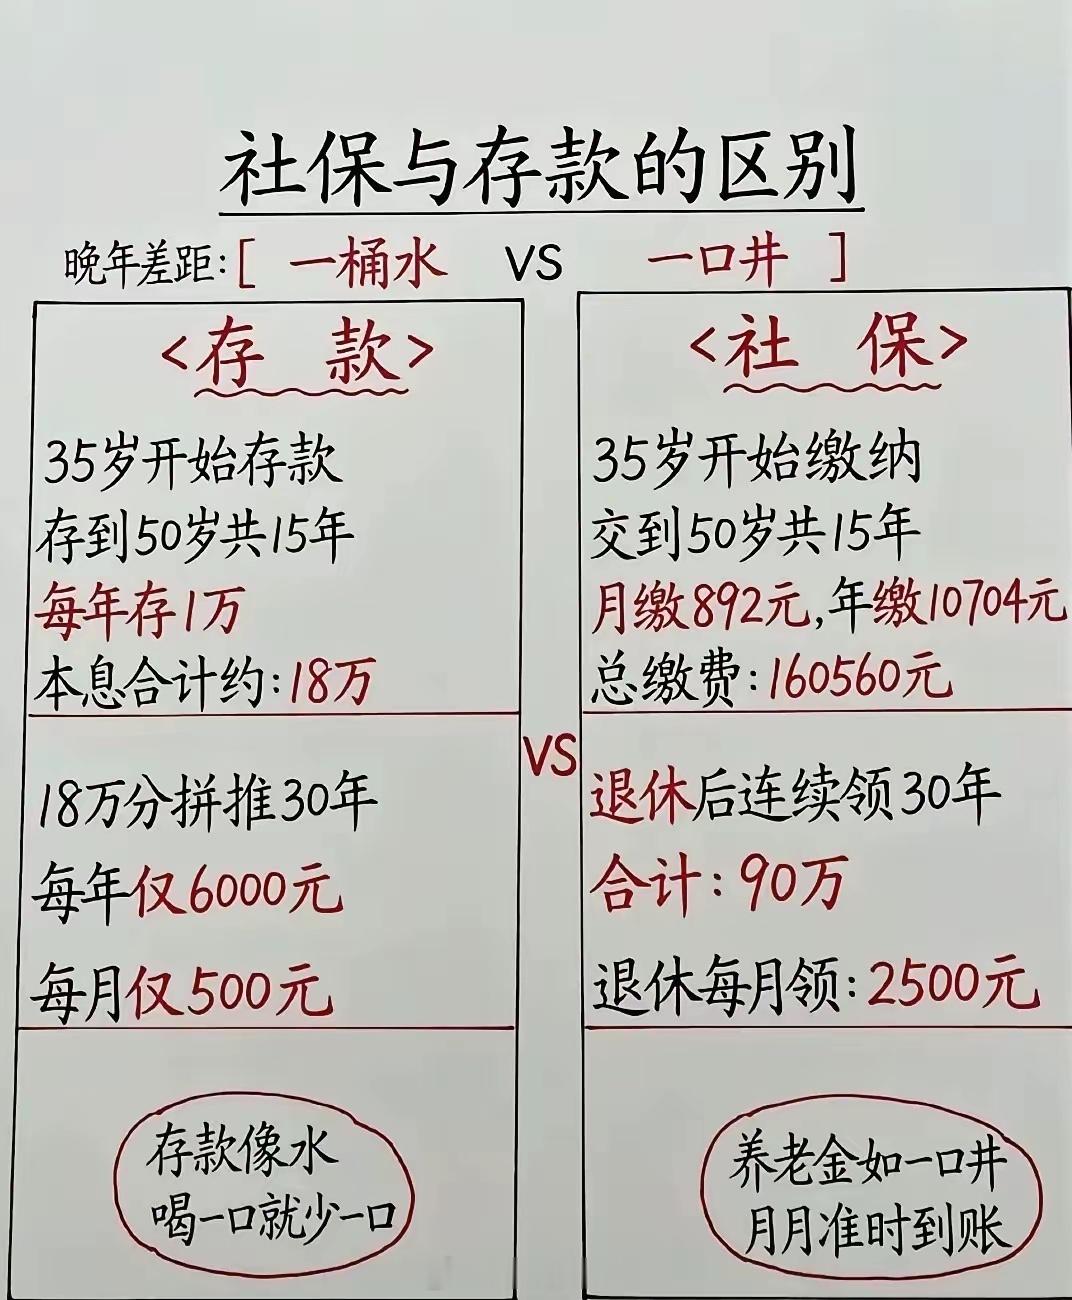 社保与存款的区别
晚年差距:[ 一桶水 VS 一口井 ]
<存 款>
35岁开始存款
存到50岁共15年
每年存1万
本息合计约:18万
18万分拼推30年
每年仅6000元
每月仅500元
存款像水
喝一口就少一口
VS
<社 保>
35岁开始缴纳
交到50岁共15年
月缴892元,年缴10704元
总缴费:160560元
退休后连续领30年
合计:90万
退休每月领:2500元
养老金如一口井
月月准时到账